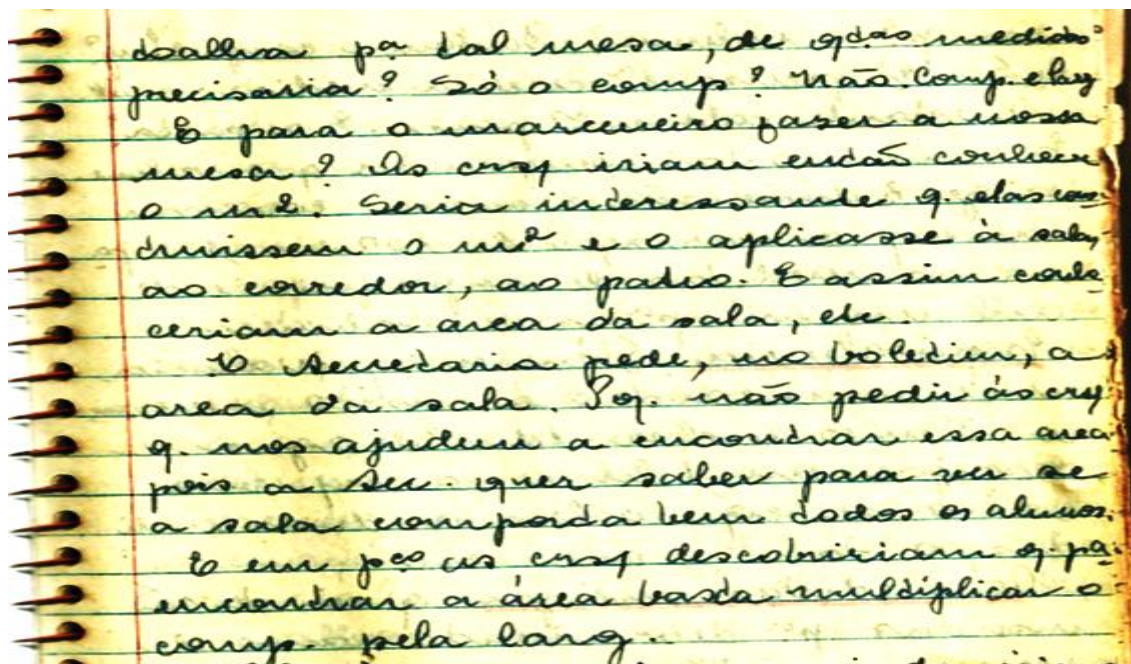 toalha pa tal mesa, de qtas medidas
precisaria? Só o comp? Não. Comp. e larg
E para o marceneiro fazer a nossa
mesa? As crsç iriam então conhecer
o m2. Seria interessante q. elas cons
truissem o m2 e o aplicasse à sala,
ao corredor, ao patio. E assim conhe
ceriam a area da sala, etc.
A Secretaria pede, no boletim, a
area da sala. Pq. não pedir às crsç
q. nos ajudem a encontrar essa area
pois a Sec. quer saber para ver se
a sala comporta bem todos os alunos.
E em pco as crsç descobririam q. pa
encontrar a área basta multiplicar o
comp. pela larg.